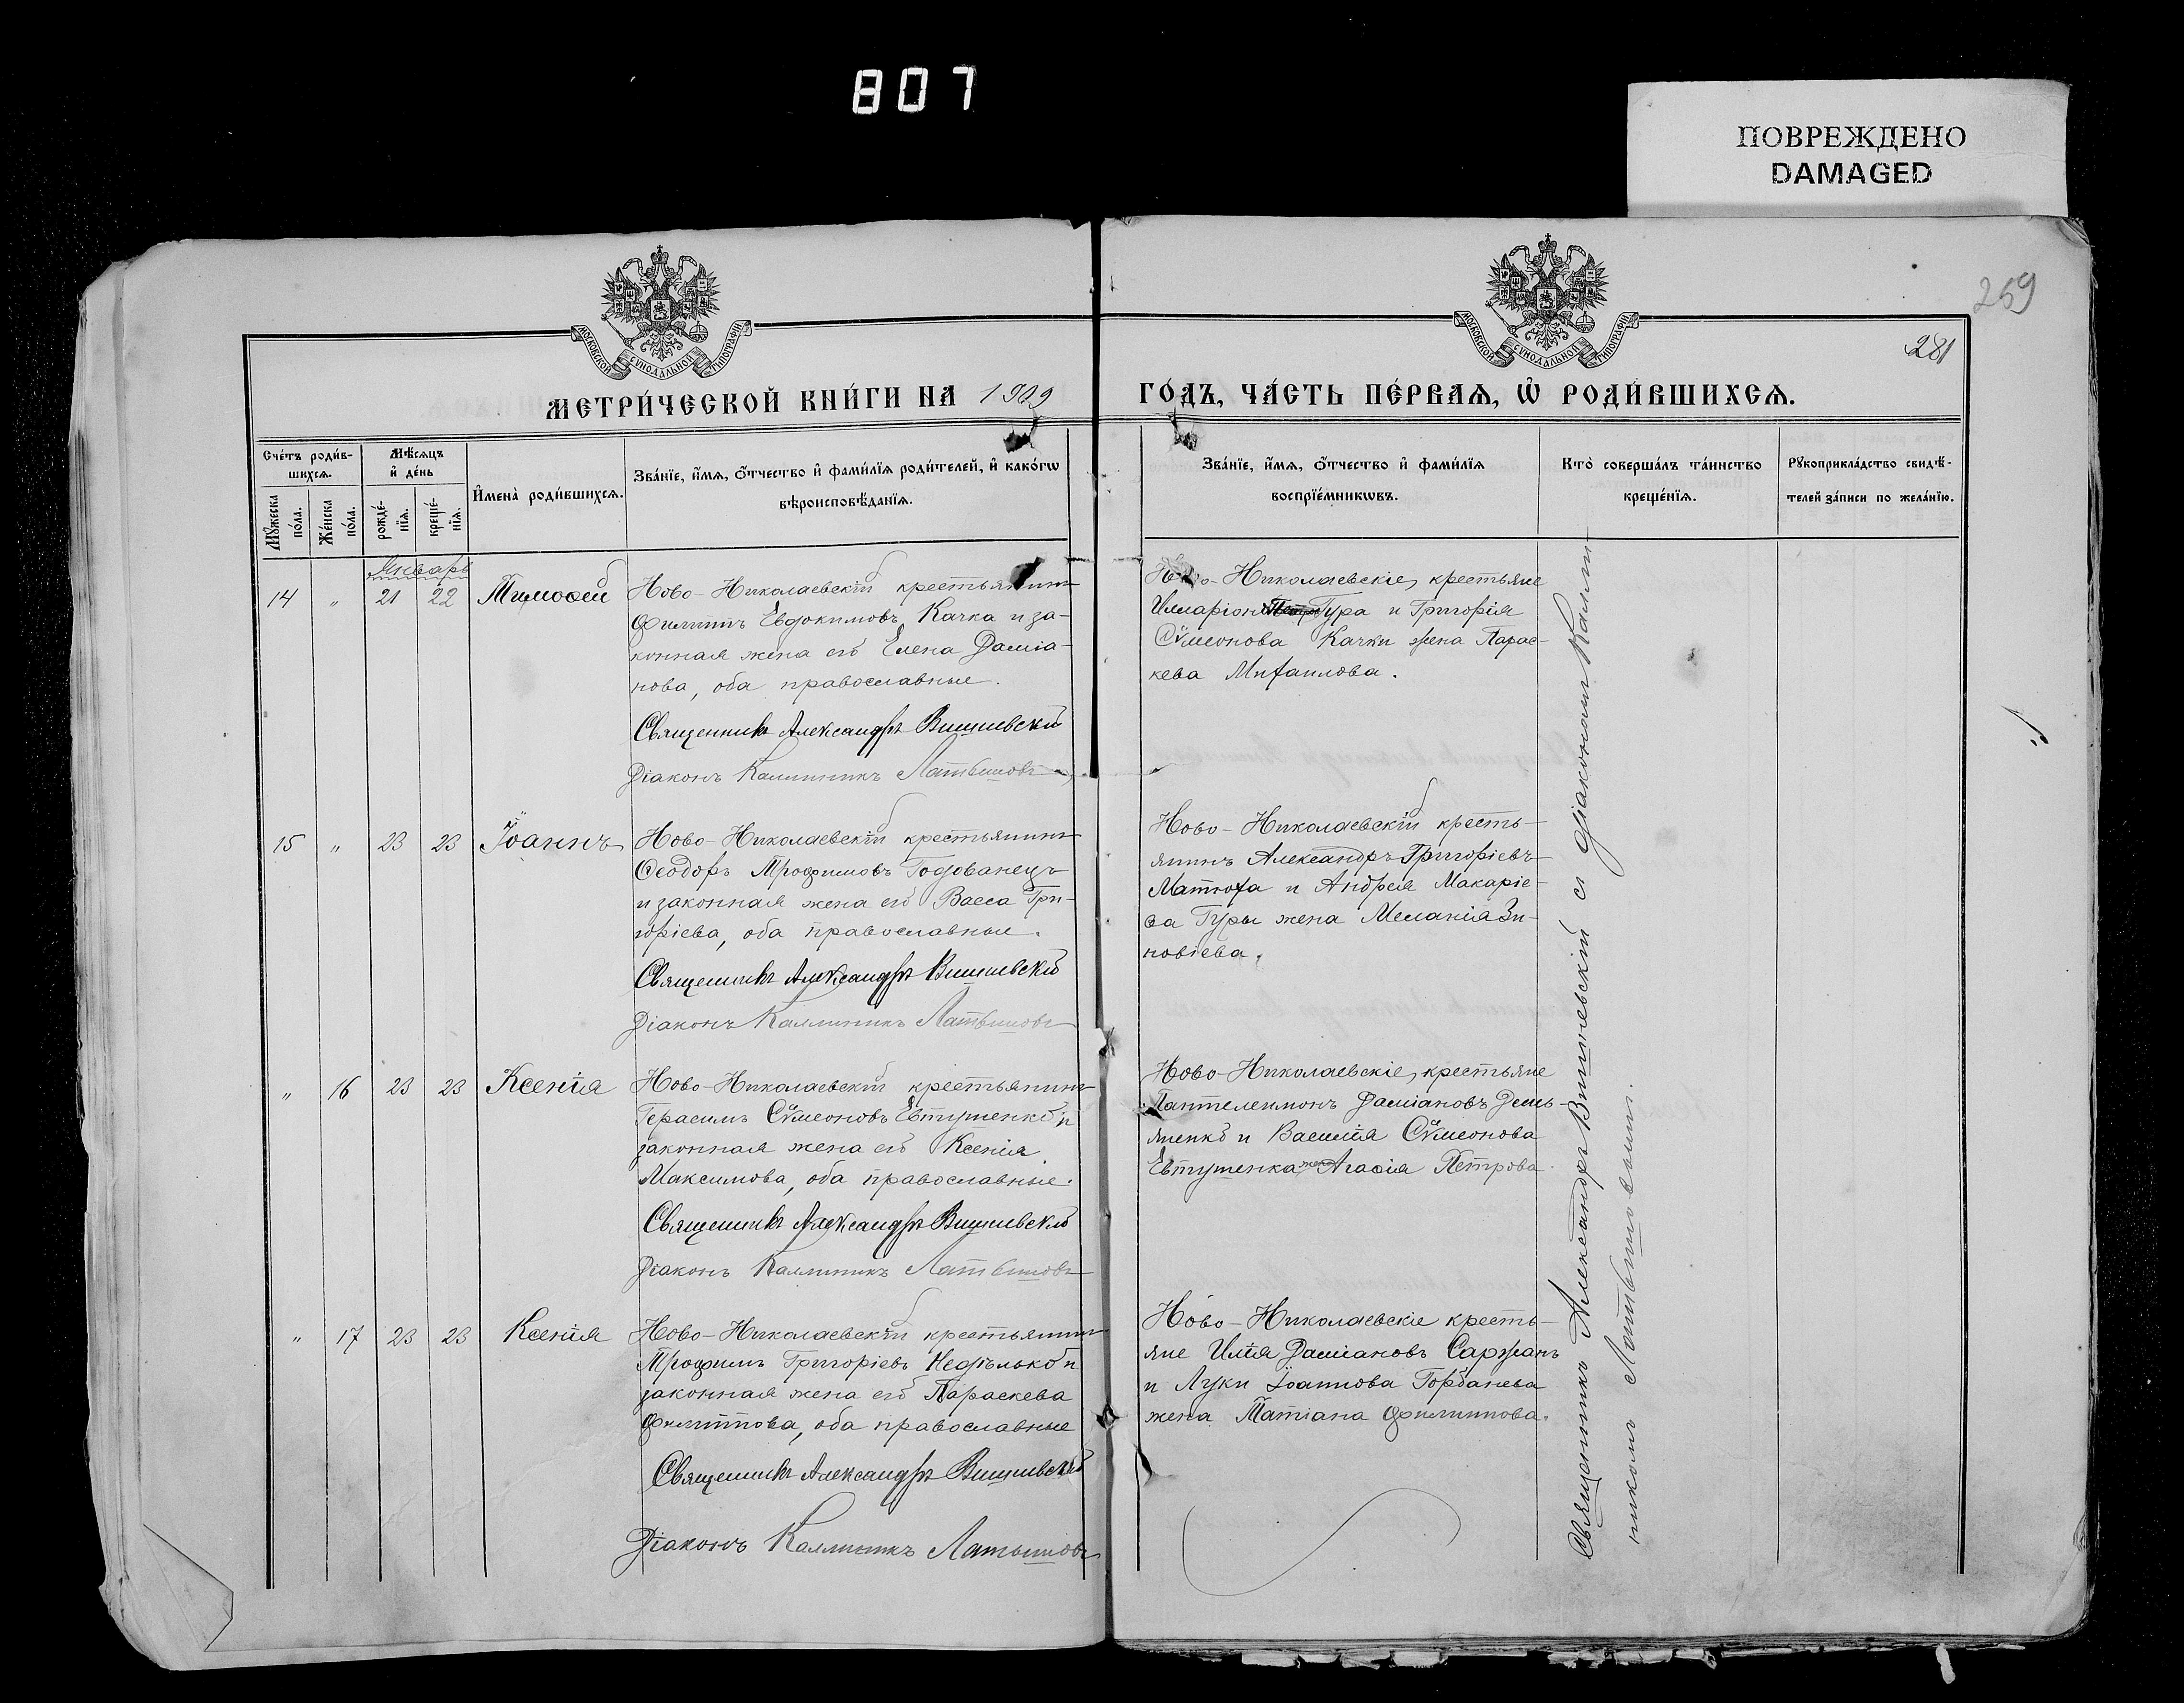 807
ПОВРЕЖДЕНО
DAMAGED
259
281
МОСКОВСКОЙ СѴНОДАЛЬНОЙ ТИПОГРАФІИ
МОСКОВСКОЙ СѴНОДАЛЬНОЙ ТИПОГРАФІИ
МЕТРИ́ЧЕСКОЙ КНИ́ГИ НА 1909 ГО́ДЪ, ЧА́СТЬ ПЕ́РВАѦ, Ѽ РОДИ́ВШИХСѦ.
Счéтъ роди́в-
шихсѧ.
Мꙋ́жеска
по́ла.
Же́нска
по́ла.
Мѣ́сѧцъ
и҆ де́нь
рожде́-
нїѧ.
креще́-
нїѧ.
И҆мена̀ роди́вшихсѧ.
Зва́нїе, и҆́мѧ, ѻ҆́тчество и҆ фами́лїѧ роди́телей, и҆ како́гѡ
вѣроисповѣ́данїѧ.
Зва́нїе, и҆́мѧ, ѻ҆́тчество и҆ фами́лїѧ
воспрїе́мникѡвъ.
Кто̀ соверша́лъ та́инство
креще́нїѧ.
Рꙋкоприкла́дство свидѣ́-
телей за́писи по жела́нїю.
Январь
14 " 21 22 Тимоѳей
Ново-Николаевскій крестьянинъ
Филиппъ Евдокимовъ Качка и за-
конная жена его Елена Даміа-
нова, оба православные.
Священникъ Александръ Вишневскій
Діаконъ Каллиникъ Латышовъ
Ново-Николаевскіе, крестьяне
Иларіонъ Гура и Григорія
Сѵмеонова Качки жена Парас-
кева Михаилова.
15 " 23 23 Іоаннъ
Ново-Николаевскій крестьянинъ
Ѳеодоръ Трофимовъ Годованецъ
и законная жена его Васса Гри-
горіева, оба православные.
Священникъ Александръ Вишневскій
Діаконъ Каллиникъ Латышовъ
Ново-Николаевскій кресть-
янинъ Александръ Григоріевъ
Матюха и Андрея Макаріе-
ва Гуры жена Меланія Зи-
новіева.
" 16 23 23 Ксенія
Ново-Николаевскій крестьянинъ
Герасимъ Сѵмеоновъ Евтушенко и
законная жена его Ксенія
Максимова, оба православные.
Священникъ Александръ Вишневскій
Діаконъ Каллиникъ Латышовъ
Ново-Николаевскіе, крестьяне
Пантелеимонъ Даміановъ Демь-
яненко и Василія Сѵмеонова
Евтушенка жена Агаѳія Петрова.
" 17 23 23 Ксенія
Ново-Николаевскій крестьянинъ
Трофимъ Григоріевъ Недѣлько и
законная жена его Параскева
Филиппова, оба православные
Священникъ Александръ Вишневскій
Діаконъ Каллиникъ Латышовъ
Ново-Николаевскіе кресть-
яне Илія Даміановъ Саржанъ
и Луки Іоаннова Горбанева
жена Татіана Филиппова.
Священникъ Александръ Вишневскій съ діакономъ Калли-
никомъ Латышовымъ.